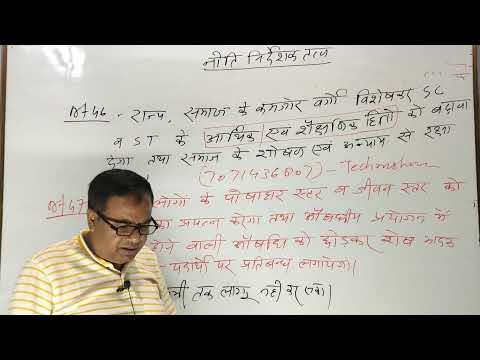 नीति निर्देशक तत्व
Art 46 - राज्य, समाज के कमजोर वर्गो विशेषकर SC
व ST के आर्थिक एवं शैक्षनिक हितों को बढ़ावा
देगा तथा समाज के शोषण एवं अन्याय से रक्षा
(7071436807) - Technician
Art 47 लोगों के पोषाहार स्तर व जीवन स्तर को
का प्रयत्न करेगा तथा औषधीय प्रयोजन में
होने वाली औषधि को छोड़कर शेष मादक
पदार्थो पर प्रतिबन्ध लगायेगा।
तक लागू नही कर सका।